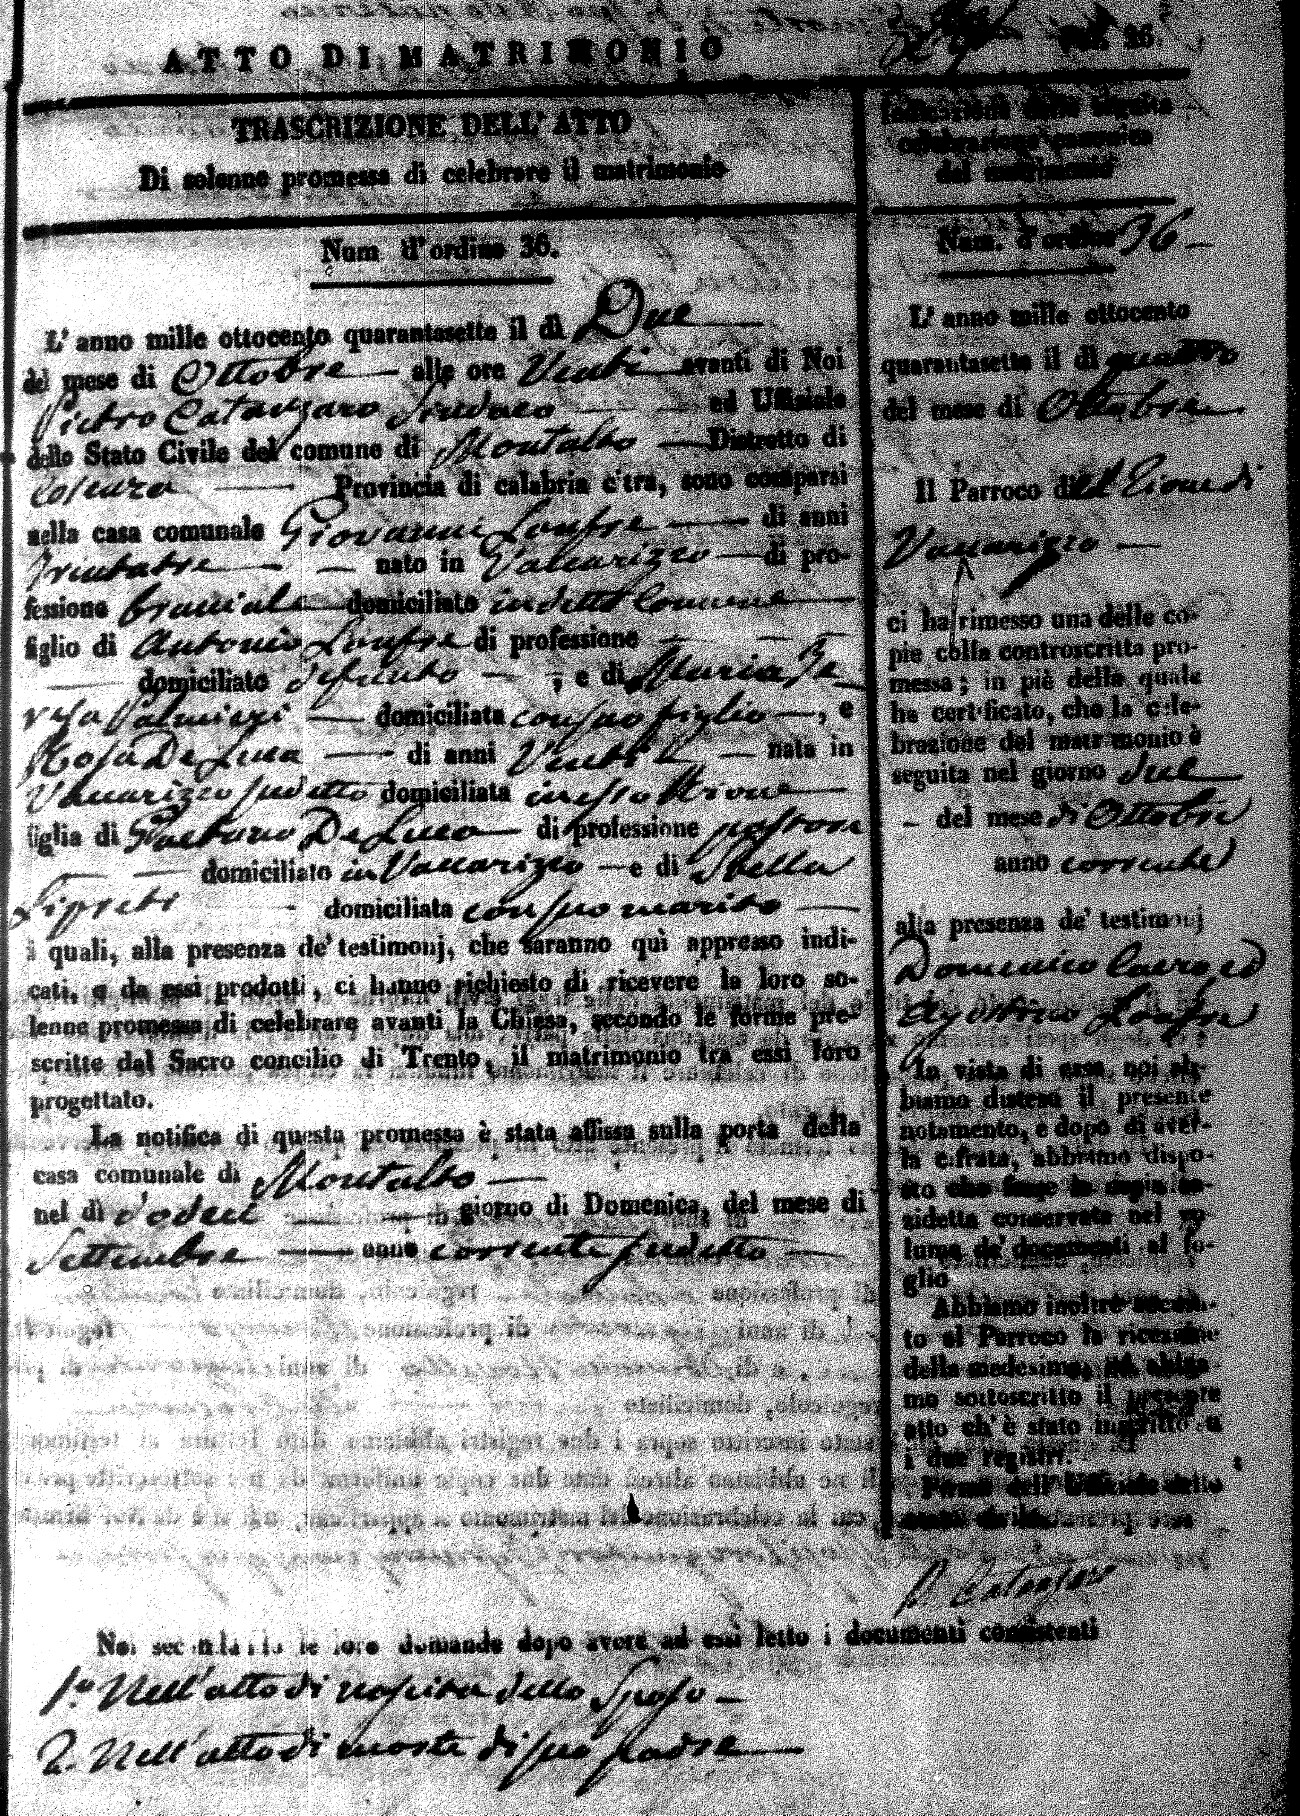 ATTO DI MATRIMONIO
TRASCRIZIONE DELL' ATTO
Di solenne promessa di celebrare il matrimonio
Num d'ordine 36.
L' anno mille ottocento quarantasette il dì Due
del mese di Ottobre alle ore Venti avanti di Noi
Pietro Catanzaro Sindaco ed Uffiziale
dello Stato Civile del comune di Montalto Distretto di
Cosenza Provincia di calabria citra, sono comparsi
nella casa comunale Giovanni di anni
Trentatre nato in Vaccarizzo di pro-
fessione bracciale domiciliato in detto Comune
figlio di Antonio di professione
domiciliato defunto , e di Maria Te
resa Palmieri domiciliata con suo figlio , e
Rosa De Luca di anni nata in
Vaccarizzo sudetto domiciliata in esso
figlia di Gaetano De Luca di professione
domiciliato in Vaccarizzo e di Stella
domiciliata con suo marito
i quali, alla presenza de' testimonj, che saranno quì appresso indi-
cati, e da essi prodotti, ci hanno richiesto di ricevere la loro so-
lenne promessa di celebrare avanti la Chiesa, secondo le forme pre-
scritte dal Sacro concilio di Trento, il matrimonio tra essi loro
progettato.
La notifica di questa promessa è stata affissa sulla porta della
casa comunale di Montalto
nel dì dodeci giorno di Domenica, del mese di
Settembre anno corrente sudetto
26.
Indicazione della seguita
celebrazione canonica
del matrimonio
Num. d'ordine 36
L' anno mille ottocento
quarantasette il dì quattro
del mese di Ottobre
Il Parroco di
Vaccarizzo
ci ha rimesso una delle co-
pie della controscritta pro-
messa; in piè della quale
ha certificato, che la cele-
brazione del matrimonio è
seguita nel giorno due
del mese di Ottobre
anno corrente
alla presenza de' testimonj
Domenico ed
Agostino
In vista di essa, noi ab-
biamo disteso il presente
notamento, e dopo di aver-
la cifrata, abbiamo dispo-
sto che fosse la copia su-
sidetta conservata nel vo-
lume de' documenti al fo-
glio
Abbiamo inoltre
to al Parroco la ricezione
della medesima, ed abbia-
mo sottoscritto il presente
atto ch' è stato inscritto su
i due registri.
Firma dell' Uffiziale dello
P. Catanzaro
Noi secondando le loro domande dopo avere ad essi letto i documenti consistenti
1.º Nell' atto di nascita dello Sposo
2. Nell' atto di morte di suo padre